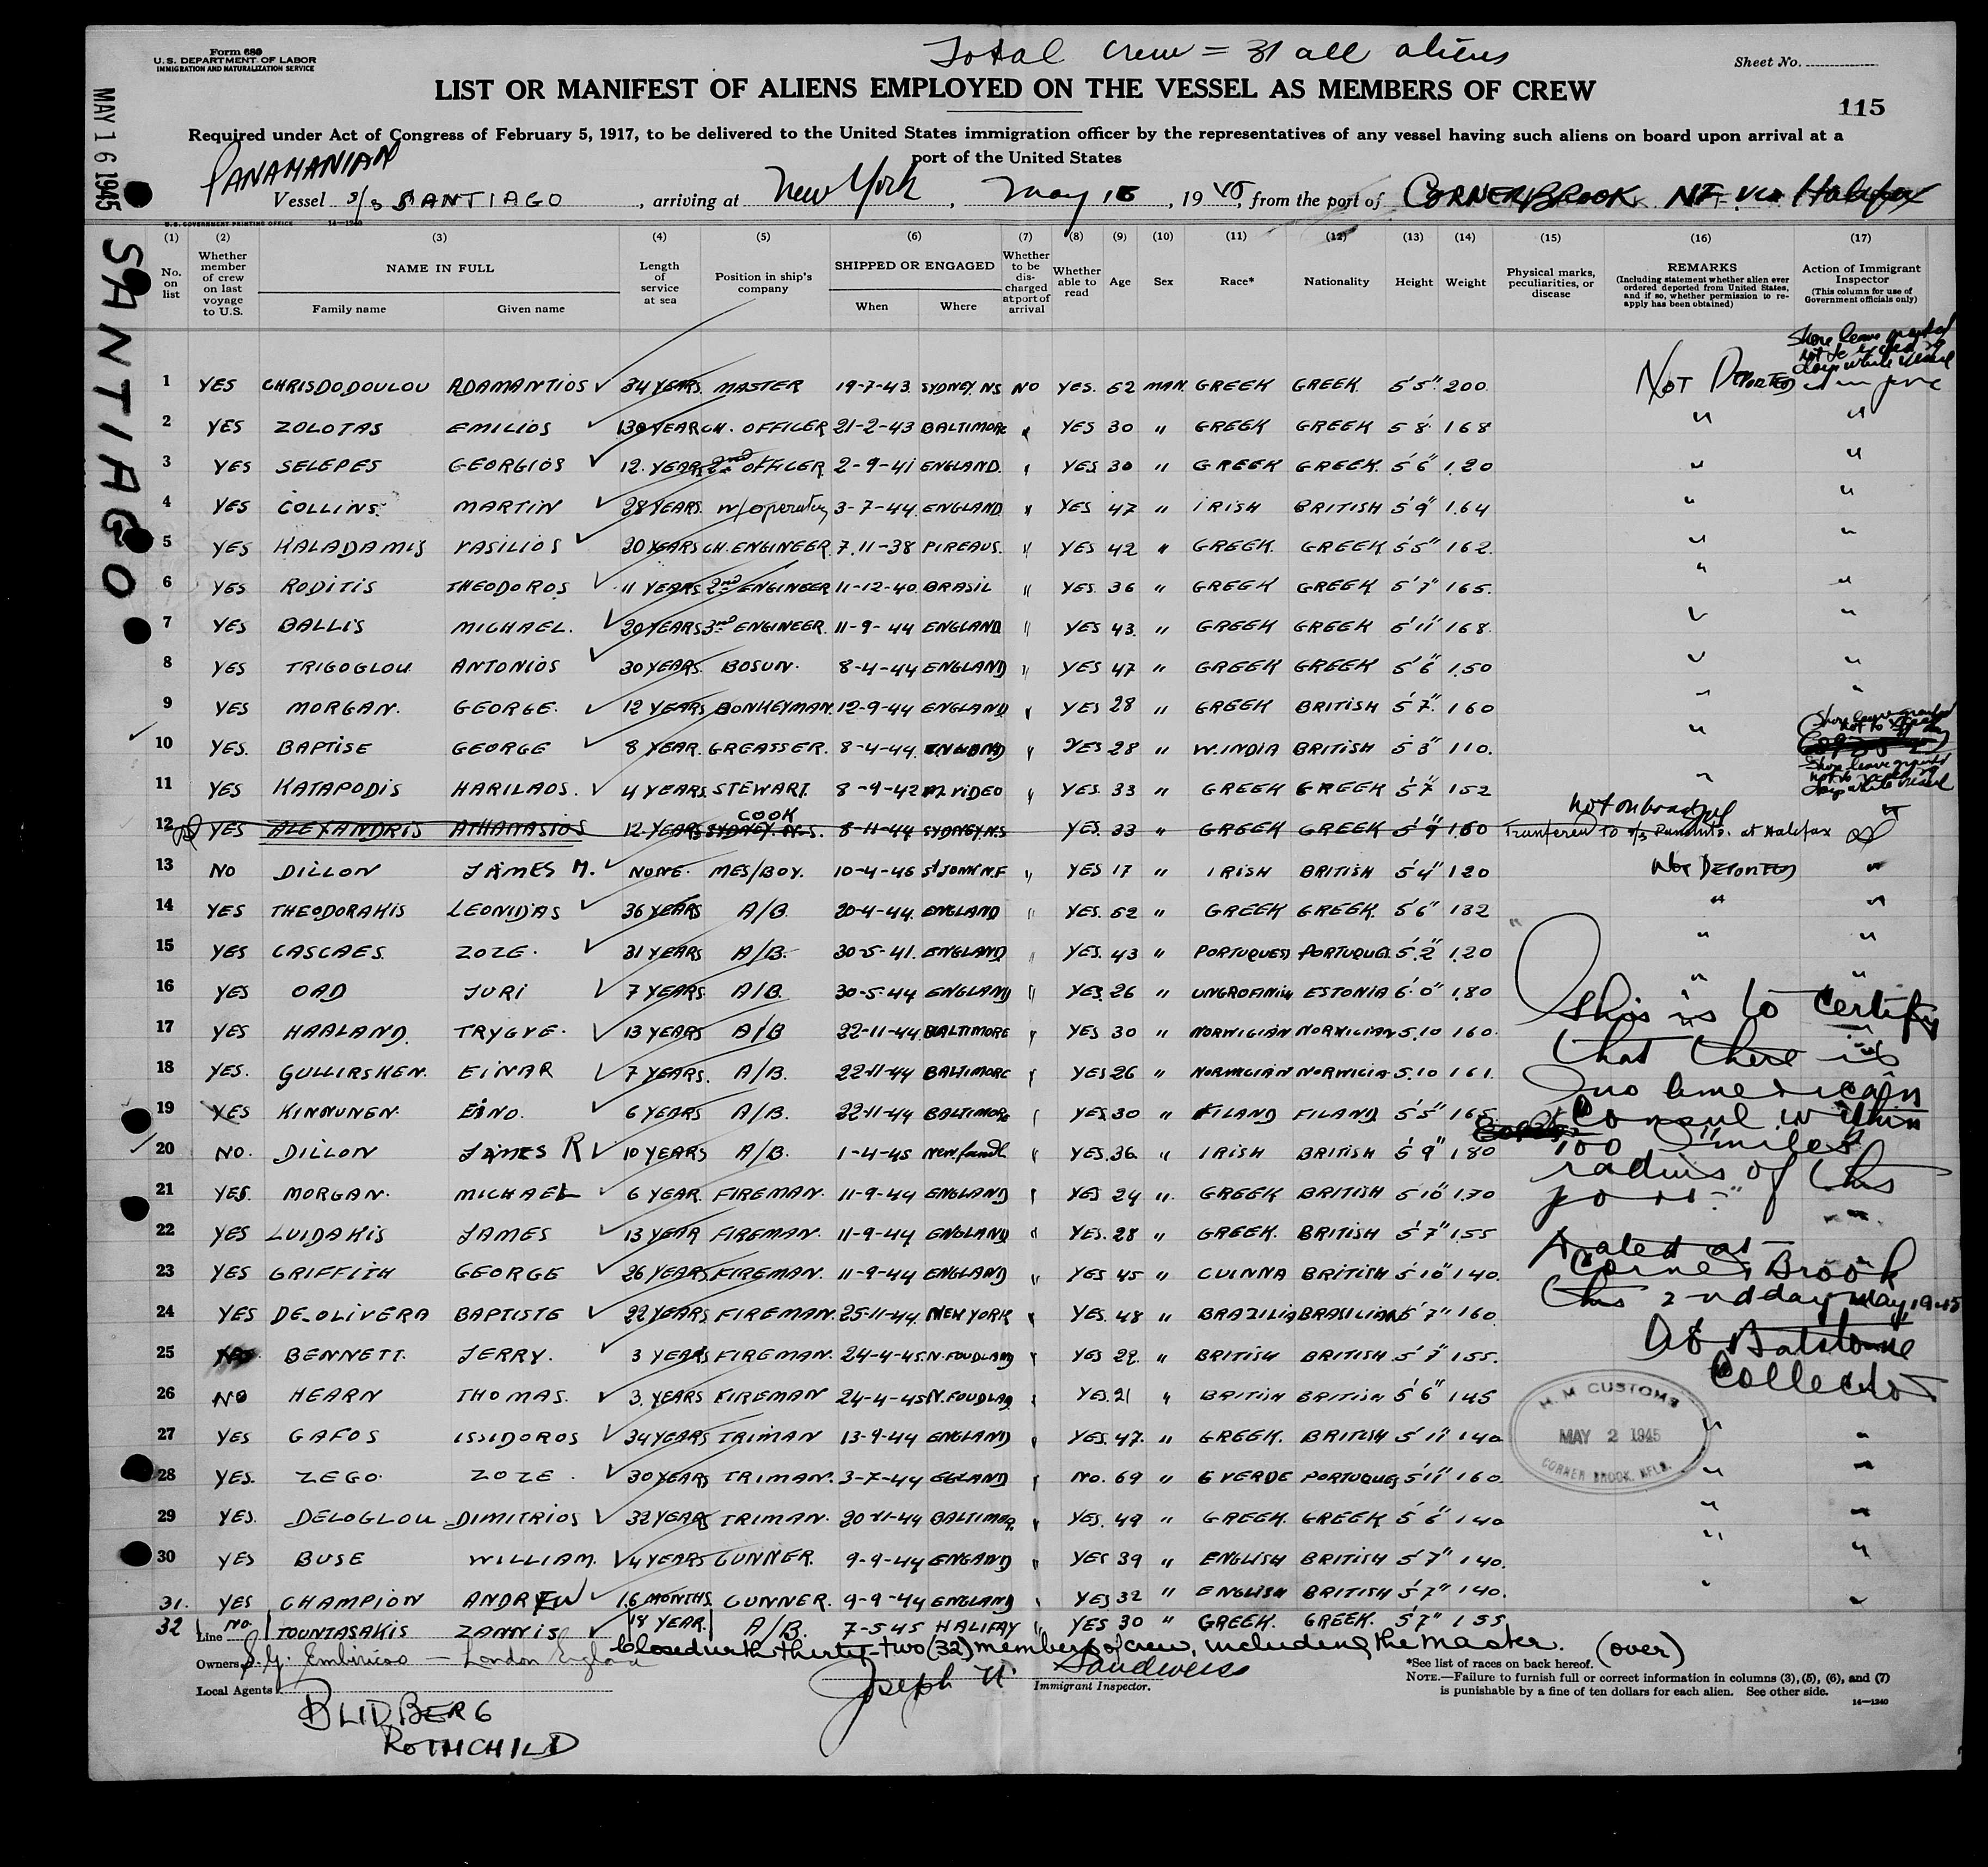 Form 680
U.S. DEPARTMENT OF LABOR
IMMIGRATION AND NATURALIZATION SERVICE
Total crew = 31 all aliens
Sheet No.
LIST OR MANIFEST OF ALIENS EMPLOYED ON THE VESSEL AS MEMBERS OF CREW
115
Required under Act of Congress of February 5, 1917, to be delivered to the United States immigration officer by the representatives of any vessel having such aliens on board upon arrival at a
port of the United States
MAY 16 1945
SANTIAGO
PANAMANIAN
Vessel s/s SANTIAGO, arriving at New York, May 16, 1945, from the port of CORNERBROOK NF via Halifax
U.S. GOVERNMENT PRINTING OFFICE 14-1240
(1) (2) (3) (4) (5) (6) (7) (8) (9) (10) (11) (12) (13) (14) (15) (16) (17)
No. on list
Whether member of crew on last voyage to U.S.
NAME IN FULL
Family name Given name
Length of service at sea
Position in ship's company
SHIPPED OR ENGAGED
When Where
Whether to be discharged at port of arrival
Whether able to read
Age Sex Race* Nationality Height Weight
Physical marks, peculiarities, or disease
REMARKS
(Including statement whether alien ever ordered deported from United States, and if so, whether permission to reapply has been obtained)
Action of Immigrant Inspector
(This column for use of Government officials only)
Shore leave granted
1 YES CHRISDODOULOU ADAMANTIOS 34 YEARS MASTER 19-7-43 SYDNEY NS NO YES. 52 MAN. GREEK GREEK 5'5" 200 NOT DEPORTED
2 YES ZOLOTAS EMILIOS 130 YEAR CH. OFFICER 21-2-43 BALTIMORE " YES 30 " GREEK GREEK 5 8" 168 " "
3 YES SELEPES GEORGIOS 12. YEARS 2nd OFFICER 2-9-41 ENGLAND. " YES 30 " GREEK GREEK. 5'6" 120 " "
4 YES COLLINS MARTIN 28 YEARS. w/operator 3-7-44 ENGLAND " YES 47 " IRISH BRITISH 5'9" 164 " "
5 YES KALADAMIS VASILIOS 20 YEARS CH. ENGINEER 7.11-38 PIREAUS. " YES 42 " GREEK. GREEK 5'5" 162. " "
6 YES RODITIS THEODOROS 11 YEARS 2nd ENGINEER 11-12-40 BRASIL " YES. 36 " GREEK GREEK 5'7" 165. " "
7 YES BALLIS MICHAEL. 20 YEARS 3rd ENGINEER. 11-9-44 ENGLAND " YES 43. " GREEK GREEK 5'11" 168. " "
8 YES TRIGOGLOU ANTONIOS 30 YEARS BOSUN. 8-4-44 ENGLAND " YES 47 " GREEK GREEK 5'6" 150 " "
9 YES MORGAN. GEORGE. 12 YEARS DONKEYMAN. 12-9-44 ENGLAND " YES 28 " GREEK BRITISH 5'7" 160 " "
10 YES. BAPTISE GEORGE 8 YEAR. GREASSER. 8-4-44. ENGLAND " YES 28 " W.INDIA BRITISH 5'3" 110. "
11 YES KATAPODIS HARILAOS. 4 YEARS. STEWART. 8-9-42 M. VIDEO " YES. 33 " GREEK GREEK 5'7" 152 "
COOK
Not on board
12 YES ALEXANDRIS ATHANASIOS 12 YEARS SYDNEY. N.S. 8-11-44 SYDNEY N.S YES. 33 " GREEK GREEK 5'9" 150 Tranfered to s/s at Halifax
13 NO DILLON JAMES M. NONE. MES/BOY. 10-4-45 St JOHN N.F " YES 17 " IRISH BRITISH 5'4" 120 Not DEPORTED "
14 YES THEODORAKIS LEONIDAS 36 YEARS A/B. 20-4-44. ENGLAND " YES. 52 " GREEK GREEK. 5'6" 132 " "
15 YES CASCAES. ZOZE. 31 YEARS A/B. 30-5-41. ENGLAND " YES. 43 " PORTUQUES PORTUQUE. 5'2" 120 " "
16 YES OAD JURI 7 YEARS. A/B. 30-5-44 ENGLAND " YES. 26 " ESTONIA 6'0" 180 " "
17 YES HAALAND. TRYGVE. 13 YEARS A/B 22-11-44. BALTIMORE " YES 30 " NORWIGIAN NORWIGIAN 5.10 160
18 YES. GULLIRSKEN. EINAR 7 YEARS. A/B. 22-11-44 BALTIMORE " YES 26 " NORWIGIAN NORWIGIA 5.10 161.
19 YES KINNUNEN. EINO. 6 YEARS A/B. 22-11-44 BALTIMORE " YES 30 " FILAND FILAND 5'5" 165
20 NO. DILLON JAMES R 10 YEARS A/B. 1-4-45 Newfundl " YES. 36 " IRISH BRITISH 5'9" 180
21 YES. MORGAN. MICHAEL 6 YEAR. FIREMAN. 11-9-44 ENGLAND " YES 24 " GREEK BRITISH 5'10" 170
22 YES LUIDAKIS JAMES 13 YEAR FIREMAN. 11-9-44 ENGLAND " YES. 28 " GREEK. BRITISH 5'7" 155
23 YES GRIFFITH GEORGE 26 YEARS FIREMAN. 11-9-44 ENGLAND " YES 45 " GUINNA BRITISH 5'10" 140.
24 YES DE-OLIVERA BAPTISTE 22 YEARS FIREMAN. 25-11-44. NEW YORK " YES. 48 " BRAZILIA BRASILIAN 5'7" 160
25 BENNETT. JERRY. 3 YEARS FIREMAN. 24-4-45. N. FOUDLAND " YES 29. " BRITISH BRITISH 5'7" 155.
26 NO HEARN THOMAS. 3. YEARS FIREMAN 24-4-45 N. FOUDLAD " YES. 21 " BRITISH BRITISH 5'6" 145
27 YES GAFOS ISSIDOROS 34 YEARS TRIMAN 13-9-44 ENGLAND " YES. 47. " GREEK. BRITISH 5'11" 140 " "
28 YES. ZEGO. ZOZE. 30 YEARS TRIMAN. 3-7-44 EGLAND " NO. 69 " G VERDE PORTUQUE 5'11" 160. " "
29 YES. DELOGLOU DIMITRIOS 32 YEARS TRIMAN. 20-11-44 BALTIMOR " YES. 49 " GREEK. GREEK 5'6" 140 " "
30 YES BUSE WILLIAM. 4 YEARS GUNNER. 9-9-44 ENGAND " YES 39 " ENGLISH BRITISH 5'7" 140. " "
31. YES CHAMPION ANDREW 16 MONTHS. GUNNER. 9-9-44 ENGLAND " YES 32 " ENGLISH BRITISH 5'7" 140. " "
32 Line No. TOUNTASAKIS ZANNIS 18 YEAR. A/B. 7-5-45 HALIFAY " YES 30 " GREEK. GREEK. 5'7" 155
This is to certify
that there is
no american
Consul within
100 miles
radius of this
port-
Dated at
Corner Brook
this 2nd day May, 1945
Batstone
Collector
H. M CUSTOMS
MAY 2 1945
CORNER BROOK. NFLD.
Closed with thirty-two (32) members of crew, including the master. (over)
Owners S.G. Embiricos - London England
Local Agents
Joseph N. Sandweiss
Immigrant Inspector.
BLIDBERG
ROTHCHILD
*See list of races on back hereof.
NOTE.—Failure to furnish full or correct information in columns (3), (5), (6), and (7)
is punishable by a fine of ten dollars for each alien. See other side.
14-1240